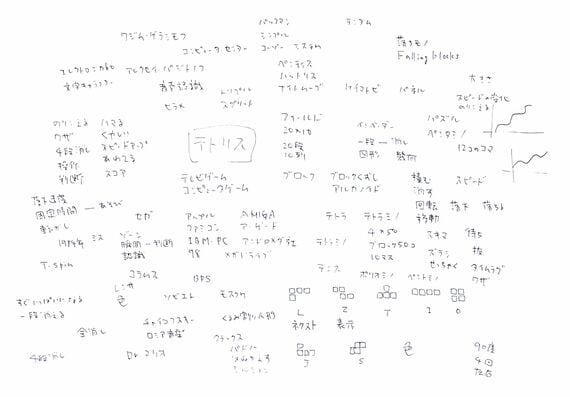 パックマン
テンタム
ワジム・ゲラシモフ
シンプル
落ちモノ
コンピュータ・センター
ユーザー システム
Falling blocks
ペンティス
エレクトロニカ60
アレクセイ・パジトノフ
ハットリス
大きさ
文字キャラクター
トリプル
ナイトムーブ
パネル
スピードの変化
セラメ
スプリート
のりこえる
のりこえる
ハマる
フィールド
インベーダー
パズル
ワザ
くやしい
20×10
ペンタミノ
テトリス
4段消し
スピードアップ
20段
一段 消し
12コのコマ
操作
あわてる
10列
図形
判断
スコア
テレビゲーム
ブロック
ブロックくずし
積む
スピード
コンピュータゲーム
アルカノイド
消す
落下速度
回転
落下
落ちる
固定時間
あそび
移動
セガ
アップル
AMIGA
テトラ
テトラミノ
1984年
ミス
ゾーン
ファミコン
アーケード
4×50
スキマ
待ち
瞬間
判断
IBM-PC
テトラミノ
ブロック50コ
ズラシ
認識
98
メガドライブ
10ミマス
T-spin
テニス
タイムラグ
コラムス
GPS
ポリオミノ
ペントミノ
ワザ
すぐいっぱいになる
色
ソビエト
モスクワ
一段消える
チャイコフスキー
くるみ割り人形
L
Z
T
I
O
全消し
ロシア民謡
ネクスト
表示
クラックス
4段消し
Dr.マリオ
色
90度
J
S
4回
左右